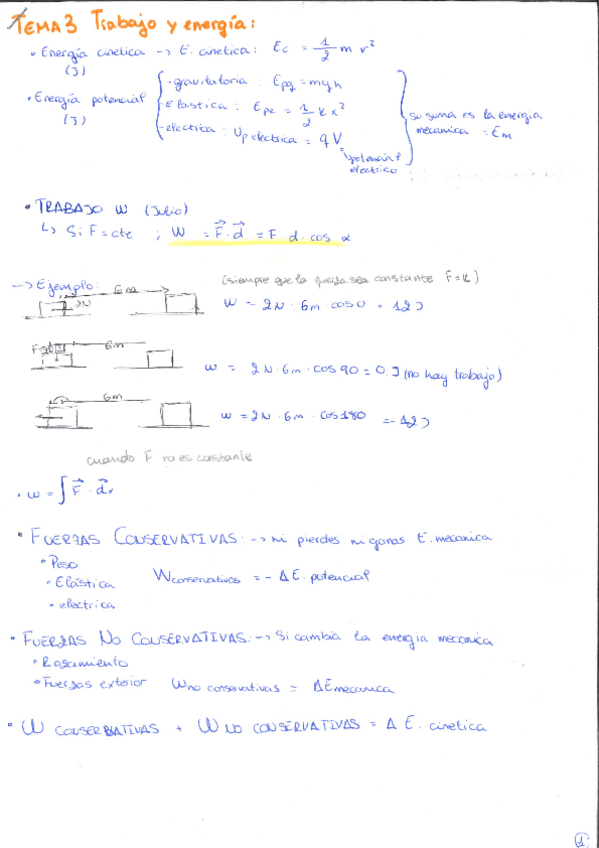 TEMA 3 Trabajo y energía:
• Energía cinetica → E. cinetica: Ec = 1/2 m v²
(J)
• Energía potencial
(J)
- gravitatoria: Epg = mgh
- Elastica: Epe = 1/2 k x²
- electrica: Up electrica = q V
potencial
electrico
su suma es la energia
mecanica = Em
• TRABAJO W (Julio)
↳ Si F = cte ; W = F⃗ · d⃗ = F d · cos α
→ Ejemplo:
(siempre que la fuerza sea constante F = K)
6m
2N
W = 2N · 6m · cos 0 = 12 J
6m
W = 2N · 6m · cos 90 = 0 J (no hay trabajo)
6m
W = 2N · 6m · cos 180 = -12 J
cuando F no es constante
• W = ∫ F⃗ · d⃗x
• FUERZAS CONSERVATIVAS: → ni pierdes ni ganas E. mecanica
• Peso
• Elástica
• electrica
Wconservativos = - ΔE. potencial
• FUERZAS NO CONSERVATIVAS: → Si cambia la energia mecanica
• Rozamiento
• Fuerzas exterior
Wno conservativas = ΔEmecanica
• W CONSERVATIVAS + W NO CONSERVATIVAS = Δ E. cinetica
1